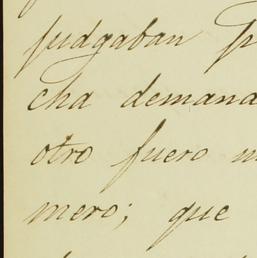 judgaban
cha demand
otro fuero
mero; que